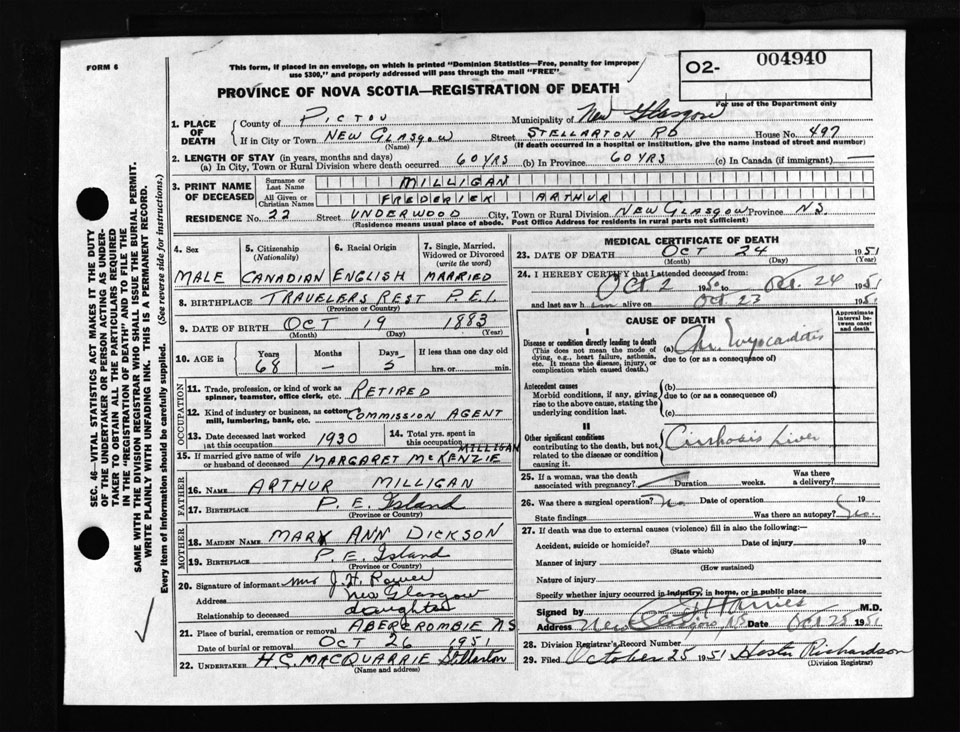 FORM 6
This form, if placed in an envelope, on which is printed "Dominion Statistics—Free, penalty for improper
use $300," and properly addressed will pass through the mail "FREE".
O2- 004940
PROVINCE OF NOVA SCOTIA—REGISTRATION OF DEATH
For use of the Department only
1. PLACE OF DEATH
County of PICTOU Municipality of New Glasgow
If in City or Town NEW GLASGOW Street STELLARTON RD House No. 497
(Name) (If death occurred in a hospital or institution, give the name instead of street and house No.)
2. LENGTH OF STAY (in years, months and days)
(a) In City, Town or Rural Division where death occurred 60 YRS (b) In Province 60 YRS (c) In Canada (if immigrant) —
3. PRINT NAME OF DECEASED
Surname or Last Name MILLIGAN
All Given or Christian Names FREDERICK ARTHUR
RESIDENCE No. 22 Street UNDERWOOD City, Town or Rural Division NEW GLASGOW Province N.S.
(Residence means usual place of abode. Post Office Address for residents in rural parts not sufficient)
4. Sex MALE
5. Citizenship (Nationality) CANADIAN
6. Racial Origin ENGLISH
7. Single, Married, Widowed or Divorced (write the word) MARRIED
8. BIRTHPLACE TRAVELERS REST P.E.I.
(Province or Country)
9. DATE OF BIRTH OCT 19 1883
(Month) (Day) (Year)
10. AGE in Years 68 Months — Days 5 If less than one day old
hrs. or min.
OCCUPATION
11. Trade, profession, or kind of work as spinner, teamster, office clerk, etc. RETIRED
12. Kind of industry or business, as cotton mill, lumbering, bank, etc. COMMISSION AGENT
13. Date deceased last worked at this occupation 1930
14. Total yrs. spent in this occupation
15. If married give name of wife or husband of deceased MARGARET McKENZIE MILLIGAN
FATHER
16. NAME ARTHUR MILLIGAN
17. BIRTHPLACE P. E. Island
(Province or Country)
MOTHER
18. MAIDEN NAME MARY ANN DICKSON
19. BIRTHPLACE P. E. Island
(Province or Country)
20. Signature of informant Mrs J. H.
Address New Glasgow
Relationship to deceased daughter
21. Place of burial, cremation or removal ABERCROMBIE N S
Date of burial or removal OCT 26 1951
22. UNDERTAKER H.C. MACQUARRIE Stellarton
(Name and address)
MEDICAL CERTIFICATE OF DEATH
23. DATE OF DEATH OCT 24 1951
(Month) (Day) (Year)
24. I HEREBY CERTIFY that I attended deceased from:
Oct 2 1950 to Oct. 24 1951
and last saw him alive on Oct 23 1951
CAUSE OF DEATH
Approximate interval between onset and death
I
Disease or condition directly leading to death
(This does not mean the mode of dying, e.g., heart failure, asthenia, etc. It means the disease, injury, or complication which caused death.)
(a) Chr. Myocarditis
due to (or as a consequence of)
Antecedent causes
Morbid conditions, if any, giving rise to the above cause, stating the underlying condition last.
(b)
due to (or as a consequence of)
(c)
II
Other significant conditions
contributing to the death, but not related to the disease or condition causing it.
Cirrhosis Liver
25. If a woman, was the death associated with pregnancy? Duration weeks. Was there a delivery?
26. Was there a surgical operation? No Date of operation 19
State findings Was there an autopsy?
27. If death was due to external causes (violence) fill in also the following:—
Accident, suicide or homicide? Date of injury 19
(State which)
Manner of injury
(How sustained)
Nature of injury
Specify whether injury occurred in industry, in home, or in public place
Signed by M.D.
Address New Glasgow, N.S Date Oct 25 1951
28. Division Registrar's Record Number
29. Filed October 25 1951 Richardson
(Division Registrar)
SEC. 46—VITAL STATISTICS ACT MAKES IT THE DUTY
OF THE UNDERTAKER OR PERSON ACTING AS UNDER-
TAKER TO OBTAIN ALL THE PARTICULARS REQUIRED
IN THE "REGISTRATION OF DEATH" AND TO FILE THE
SAME WITH THE DIVISION REGISTRAR WHO SHALL ISSUE THE BURIAL PERMIT.
WRITE PLAINLY WITH UNFADING INK. THIS IS A PERMANENT RECORD.
Every item of Information should be carefully supplied. (See reverse side for instructions.)